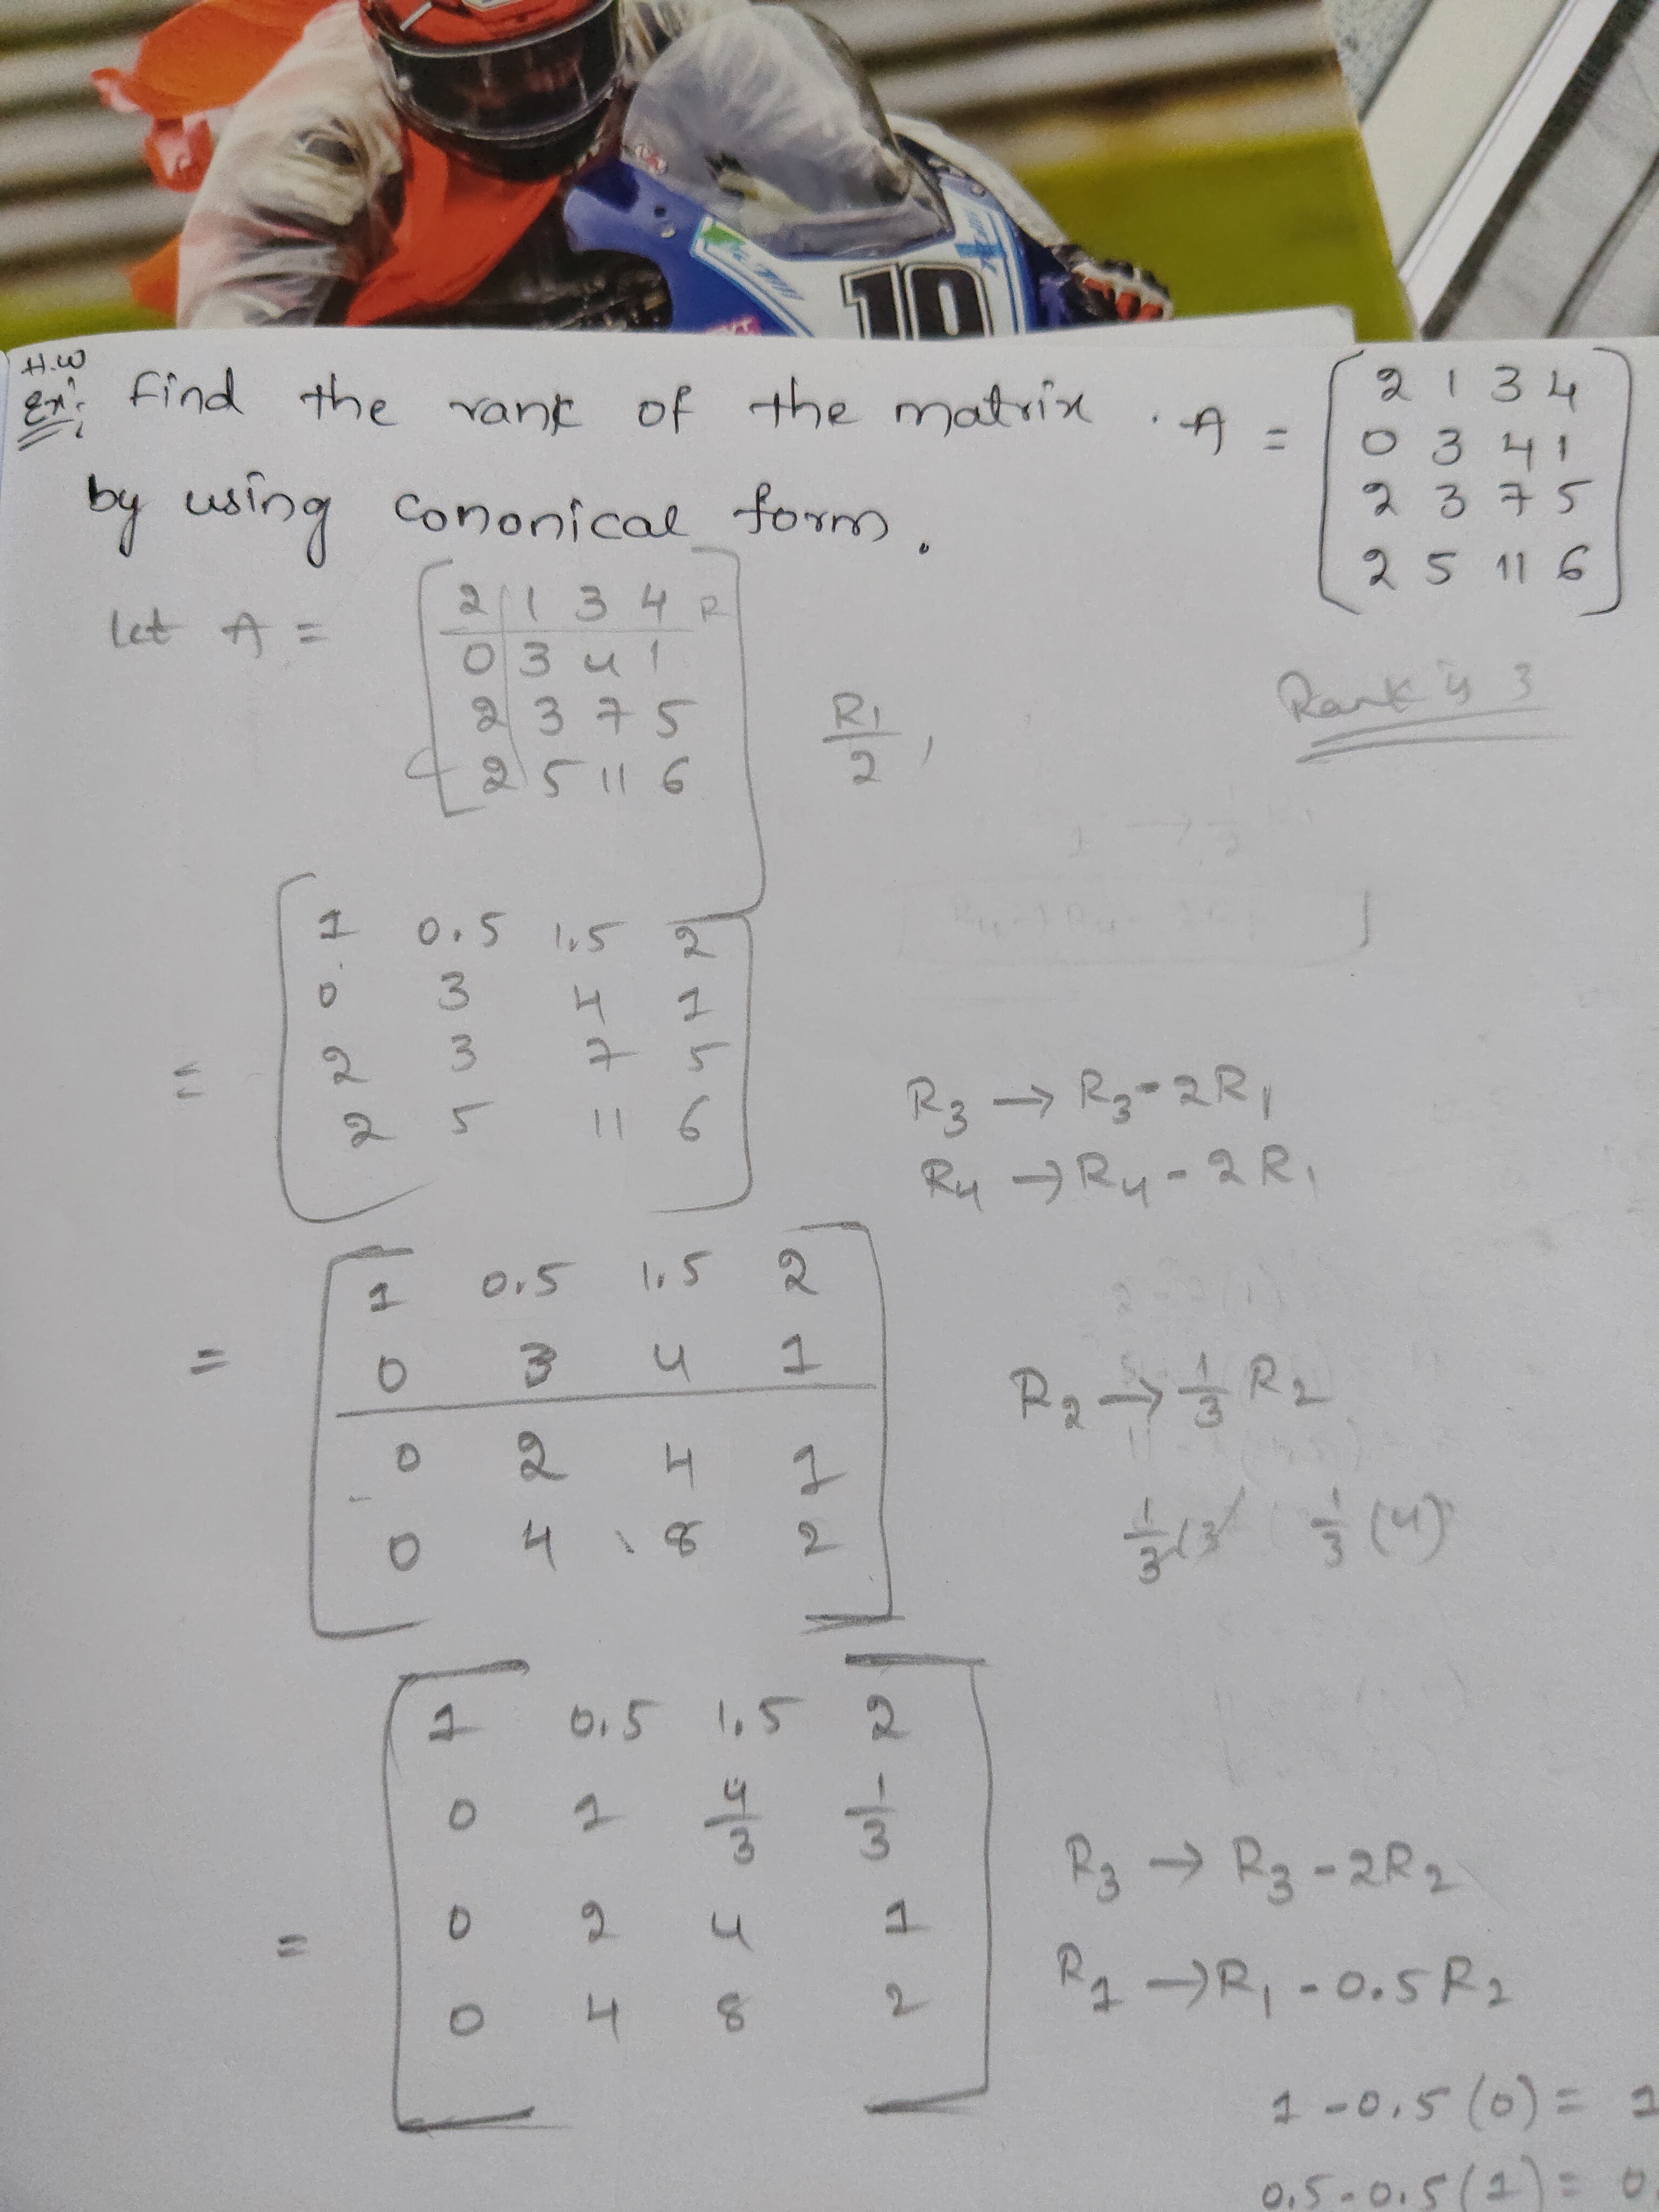 10
H.W
Ex:; Find the rank of the matrix . A = [2 1 3 4
0 3 4 1
2 3 7 5
2 5 11 6]
by using cononical form.
Let A = [2 1 3 4 R
0 3 4 1
2 3 7 5
2 5 11 6]
R1/2 ,
Rank is 3
= [1 0.5 1.5 2
0 3 4 1
2 3 7 5
2 5 11 6]
R3 → R3 - 2R1
R4 → R4 - 2R1
= [1 0.5 1.5 2
0 3 4 1
0 2 4 1
0 4 8 2]
R2 → 1/3 R2
1/3 (3 1/3 (4)
= [1 0.5 1.5 2
0 1 4/3 1/3
0 2 4 1
0 4 8 2]
R3 → R3 - 2R2
R1 → R1 - 0.5R2
1 - 0.5 (0) = 1
0.5 - 0.5 (1) = 0